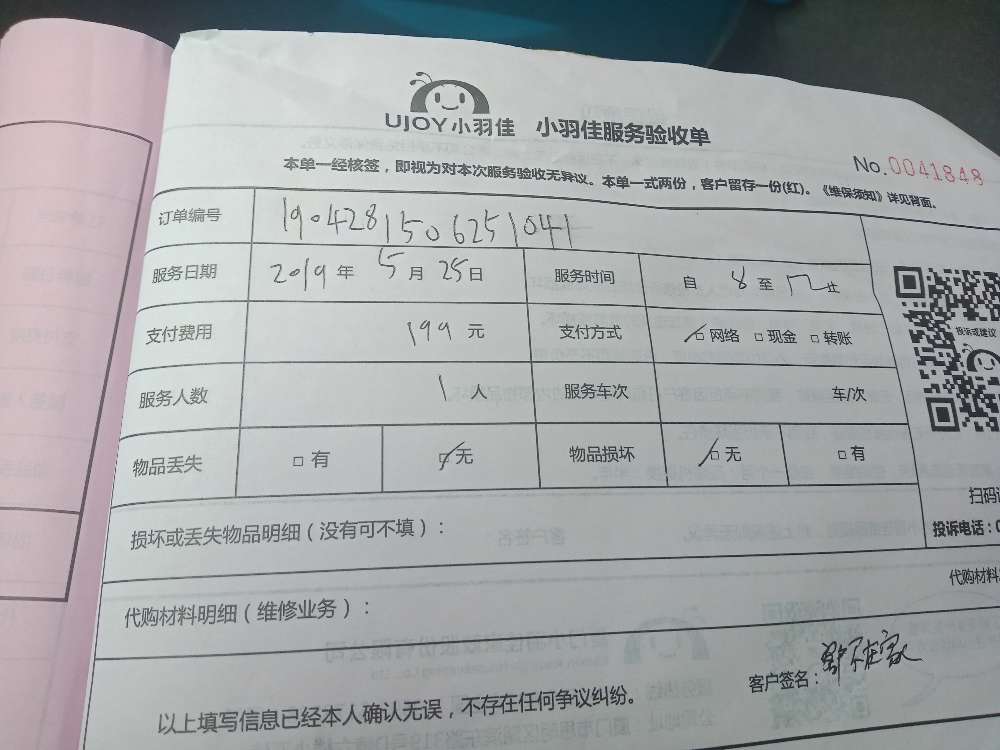 UJOY小羽佳 小羽佳服务验收单
No.0041848
本单一经核签，即视为对本次服务验收无异议。本单一式两份，客户留存一份(红)。《维保须知》详见背面。
订单编号 190428150625 1041
服务日期 2019 年 5 月 25 日 服务时间 自 8 至 12 止
支付费用 199 元 支付方式 ☑网络 □现金 □转账
投诉或建议
服务人数 1 人 服务车次 车/次
物品丢失 □有 ☑无 物品损坏 ☑无 □有
扫码
损坏或丢失物品明细（没有可不填）：
投诉电话：0
代购材料
代购材料明细（维修业务）：
客户签名：
以上填写信息已经本人确认无误，不存在任何争议纠纷。